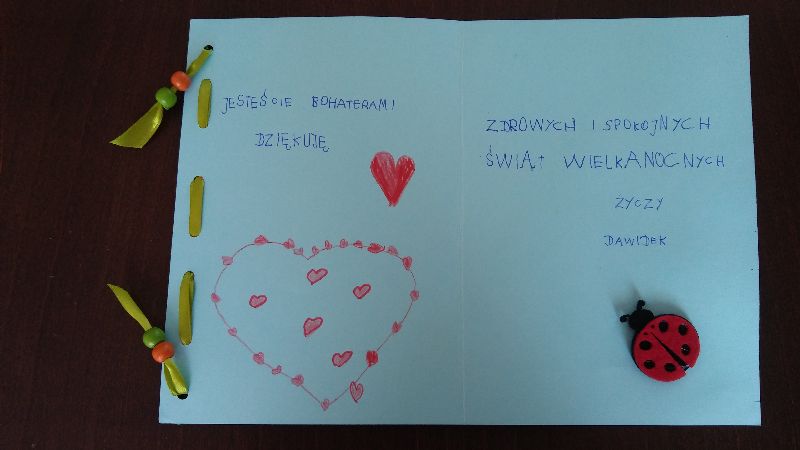 JESTEŚCIE BOHATERAMI
DZIĘKUJĘ
ZDROWYCH I SPOKOJNYCH
ŚWIĄT WIELKANOCNYCH
ŻYCZY
DAWIDEK